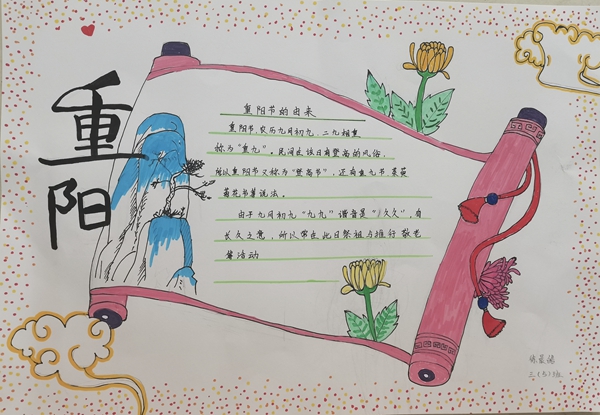 重阳
重阳节的由来
重阳节,农历九月初九,二九相重
称为"重九"。民间在该日有登高的风俗,
所以重阳节又称为"登高节",还有重九节、茱萸
菊花节等说法。
由于九月初九"九九"谐音是"久久",有
长久之意,所以常在此日祭祖与推行敬老
等活动
三(5)班